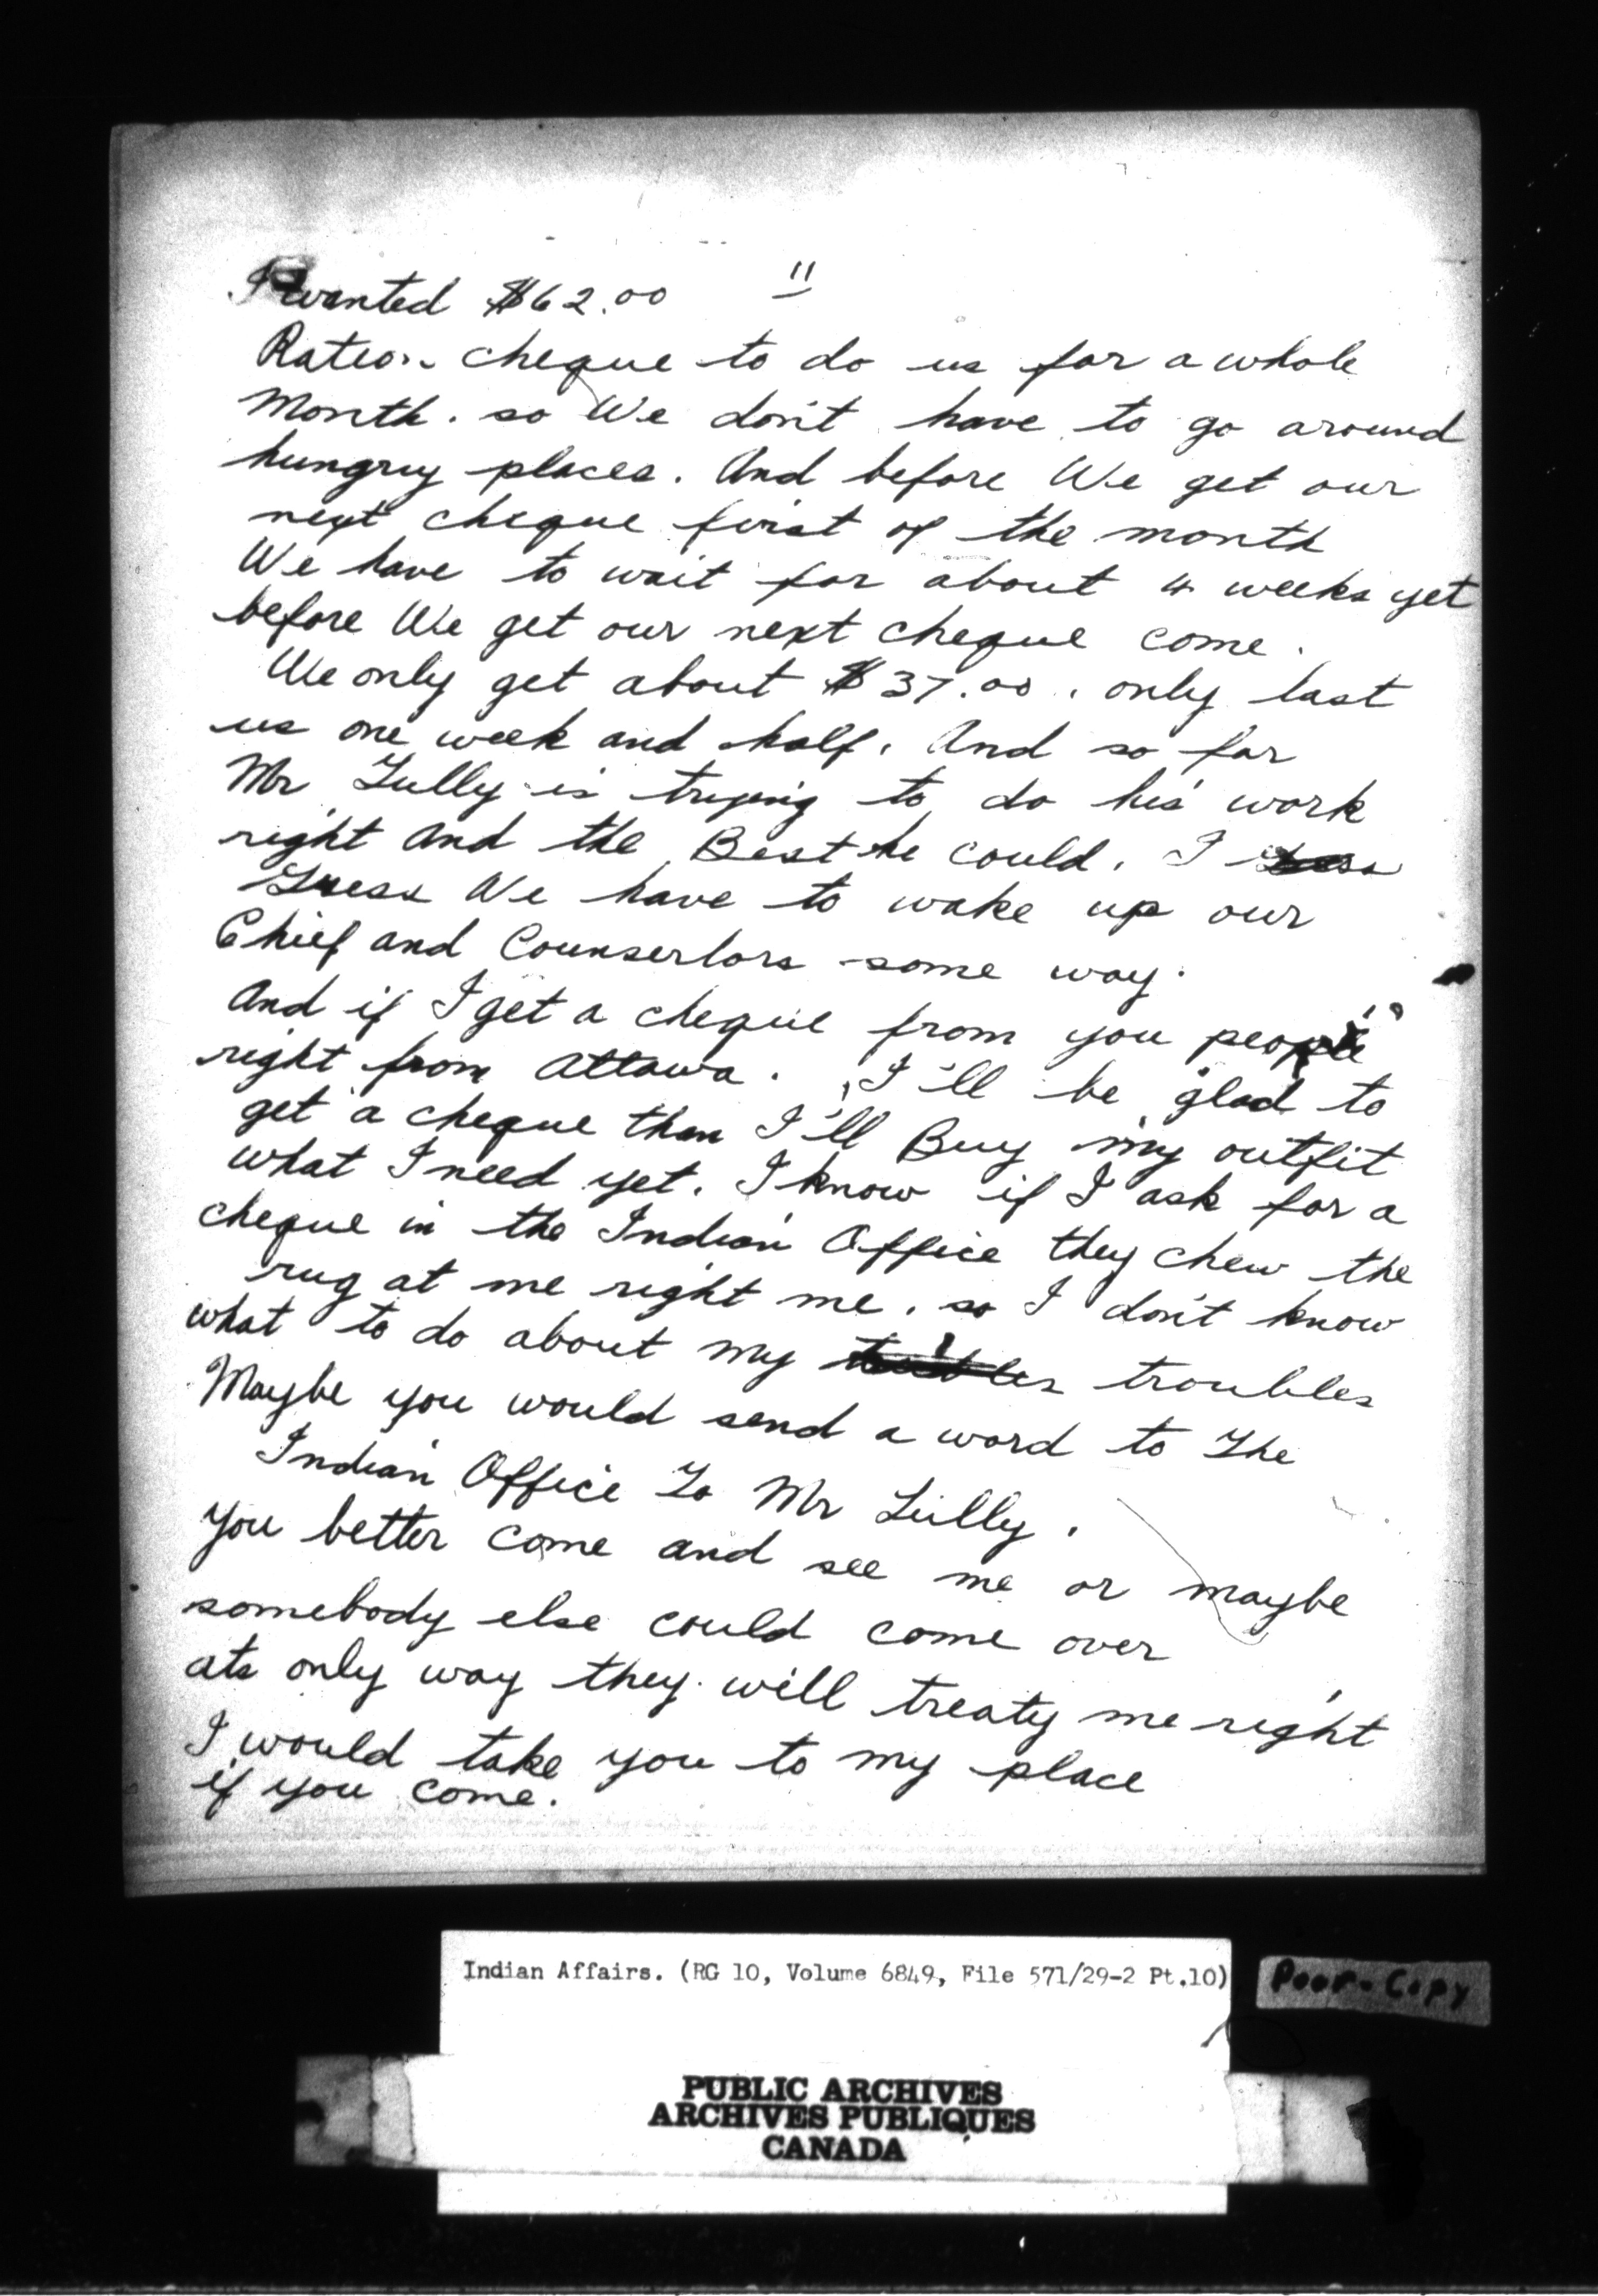 11
I wanted $62.00
Ration cheque to do us for a whole
Month. so We don't have to go around
hungry places. And before We get our
next cheque first of the month
We have to wait for about 4 weeks yet
before We get our next cheque come.
We only get about $37.00. only last
us one week and half. And so far
Mr Lully is trying to do his work
right And the Best he could. I
Guess We have to wake up our
Chief and Counserlors some way.
And if I get a cheque from you people
right from Attawa. I'll be glad to
get a cheque then I'll Buy my outfit
what I need yet. I know if I ask for a
cheque in the Indian Office they chew the
rug at me right me. so I don't know
what to do about my troubles
Maybe you would send a word to The
Indian Office To Mr Lully.
You better come and see me or maybe
somebody else could come over
ats only way they will treaty me right
I would take you to my place
if you come.
Indian Affairs. (RG 10, Volume 6849, File 571/29-2 Pt.10)
Poor-Copy
PUBLIC ARCHIVES
ARCHIVES PUBLIQUES
CANADA